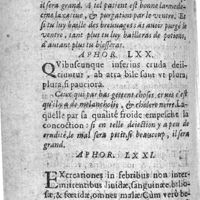 il sera grand. A tel patient est bonne la mede-
cine laxative, & purgation par le ventre. Et
si tu luy baille des breuvages: & ainsi purge le
ventre, tant plus tu luy bailleras de potions,
d'autant plus tu blesseras.
APHOR. LXX.
Quibuscunque inferius cruda deii-
ciuntur, ab atra bile sunt ve plura,
plura, si pauciora.
Ceux qui par bas gettent choses crues c'est
qu'il y a de melancholie, & cholere noire. La-
quelle par sa qualité froide empesche la
concoction: si en telle deiection y a peu de
crudité, le mal sera petit, si beaucoup, il sera
grand.
APHOR. LXXI.
Excreationes in febribus non inter-
mittentibus liuidæ, sanguineæ, bilio-
sæ, & fœtidæ, omnes malæ. Cum verò be-